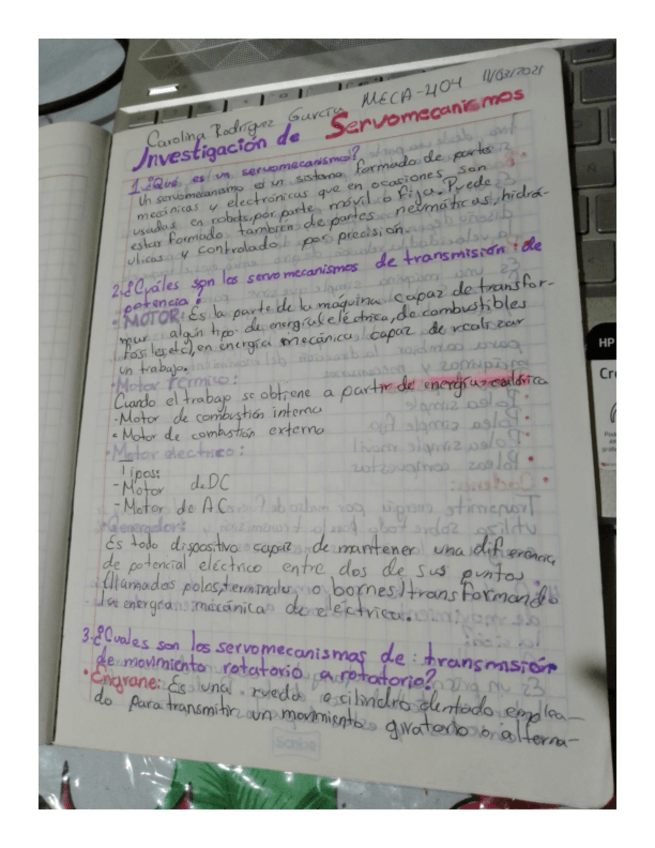 Carolina Rodríguez García MECA-404 11/03/2021
Investigación de Servomecanismos
1.¿Qué es un servomecanismo?
Un servomecanismo es un sistema formado de partes
mecánicas y electrónicas que en ocasiones son
usadas en robots, por parte móvil o fija. Puede
estar formado también de partes neumáticas, hidrá-
ulicas y controlado por precisión.
2.¿Cuáles son los servomecanismos de transmisión de
potencia?
• MOTOR: Es la parte de la máquina capaz de transfor-
mar algún tipo de energía (eléctrica, de combustibles
fósiles, etc), en energía mecánica capaz de realizar
un trabajo.
• Motor Térmico:
Cuando el trabajo se obtiene a partir de energía calórica
- Motor de combustión interna
• Motor de combustión externa
• Motor electrico:
Tipos:
- Motor de DC
- Motor de AC
• Generador:
Es todo dispositivo capaz de mantener una diferencia
de potencial eléctrico entre dos de sus puntos
(llamados polos, terminales o bornes) transformando
la energía mecánica de eléctrica.
3.¿Cuales son los servomecanismos de transmisión
de movimiento rotatorio a rotatorio?
• Engrane: Es una rueda o cilindro dentado emplea-
do para transmitir un movimiento giratorio o alterna-
Scribe
HP
Cr